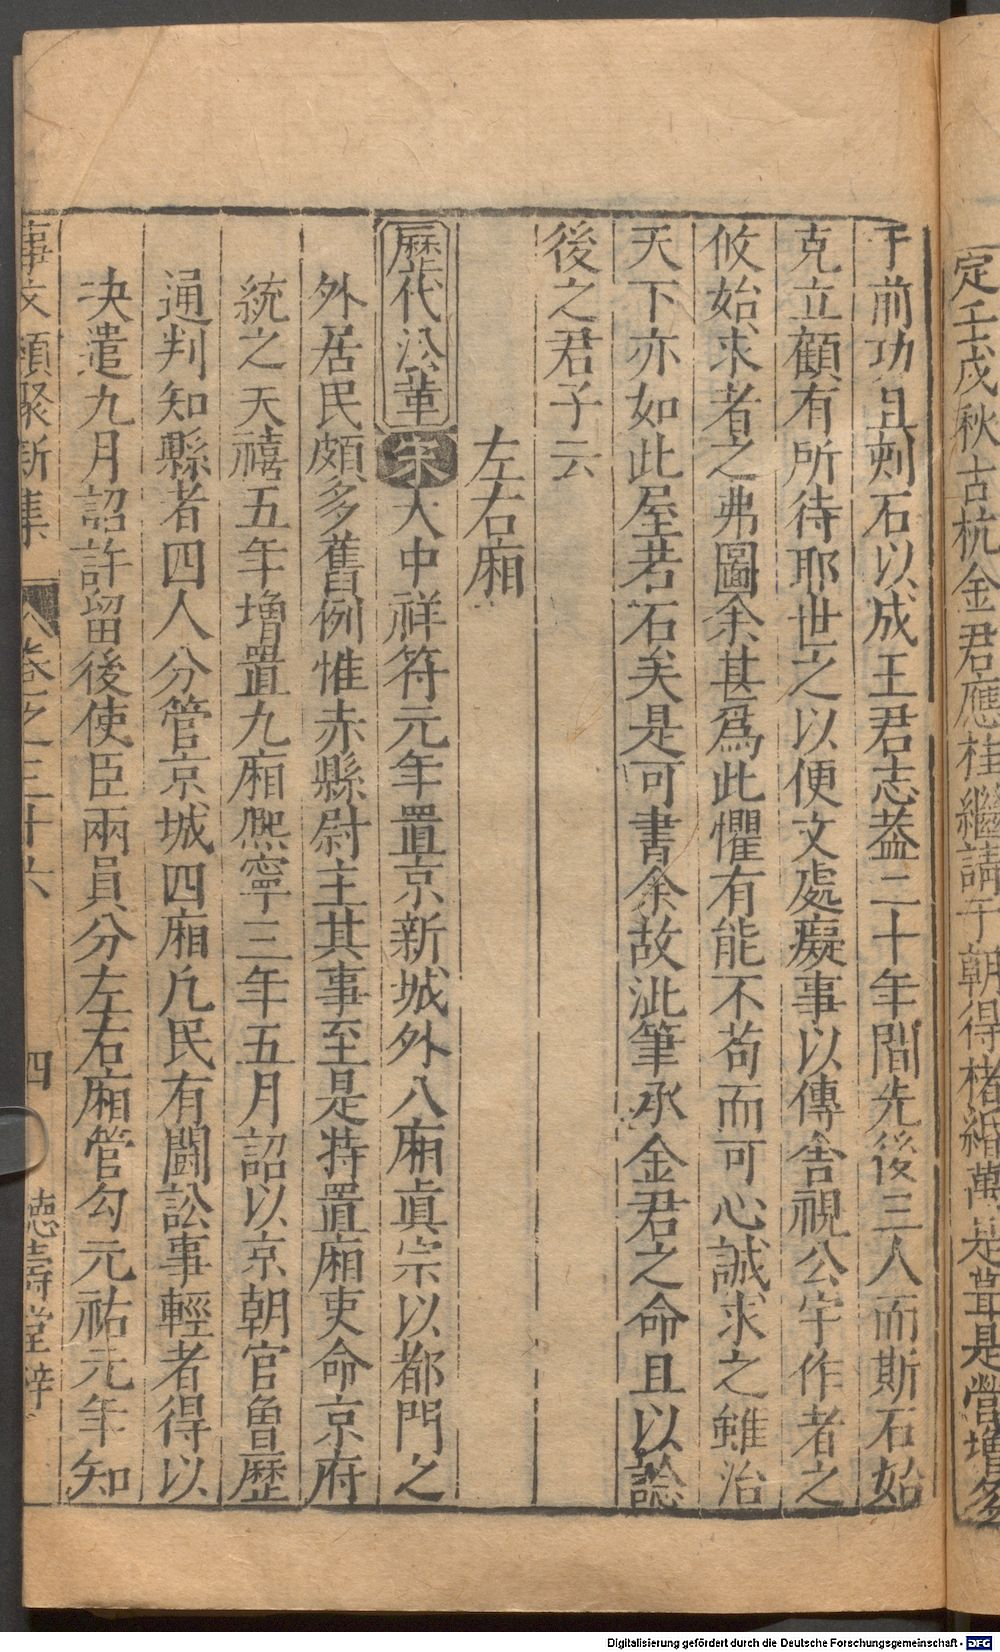 定壬戊秋古杭金君應桂繼請于朝得楮緡萬是葺是營增多
于前功且剡石以成王君志葢二十年間先後三人而斯石始
克立顧有所待耶世之以便文處癡事以傳舍視公宇作者之
攸始求者之弗圖余甚爲此懼有能不苟而可心誠求之雖治
天下亦如此屋若石矣是可書余故泚筆承金君之命且以諗
後之君子云
左右廂
歷代沿革宋大中祥符元年置京新城外八廂眞宗以都門之
外居民頗多舊例惟赤縣尉主其事至是特置廂吏命京府
統之天禧五年增置九廂熈寧三年五月詔以京朝官曾歷
通判知縣者四人分管京城四廂凢民有鬬訟事輕者得以
决遣九月詔許留後使臣兩員分左右廂管勾元祐元年知
事文類聚新集 卷之三十六 四 德壽堂梓
Digitalisierung gefördert durch die Deutsche Forschungsgemeinschaft - DFG